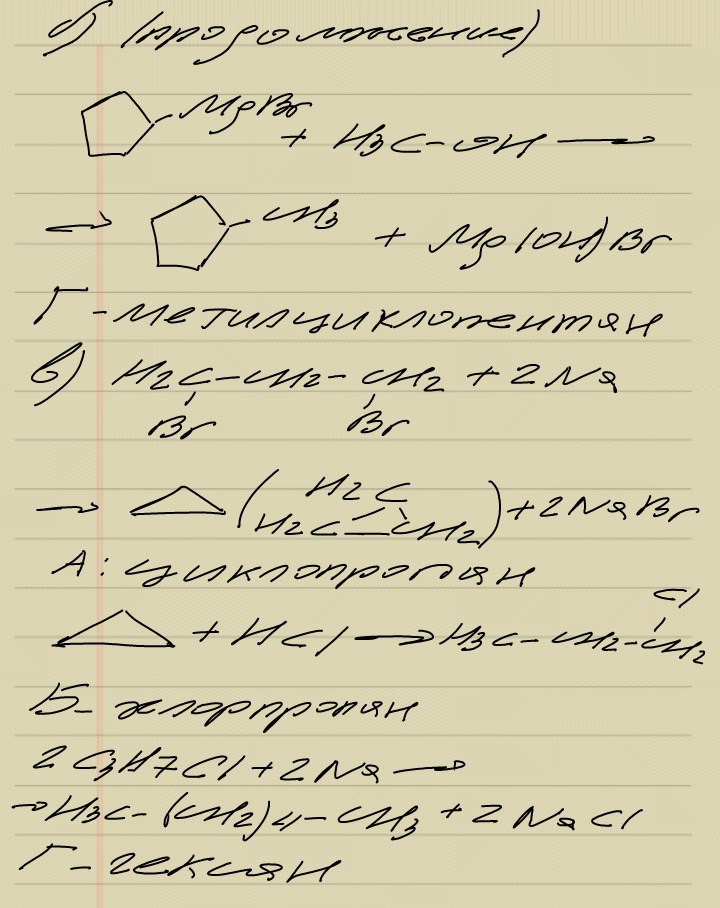 б) (продолжение)
MgBr + H3C-OH →
→ CH3 + Mg(OH)Br
Г - метилциклопентан
в) H2C-CH2-CH2 + 2Na
Br Br
→ (H2C H2C-CH2) + 2NaBr
А: циклопропан
Cl
+ HCl → H3C-CH2-CH2
Б - хлорпропан
2C3H7Cl + 2Na →
→ H3C-(CH2)4-CH3 + 2NaCl
Г - гексан